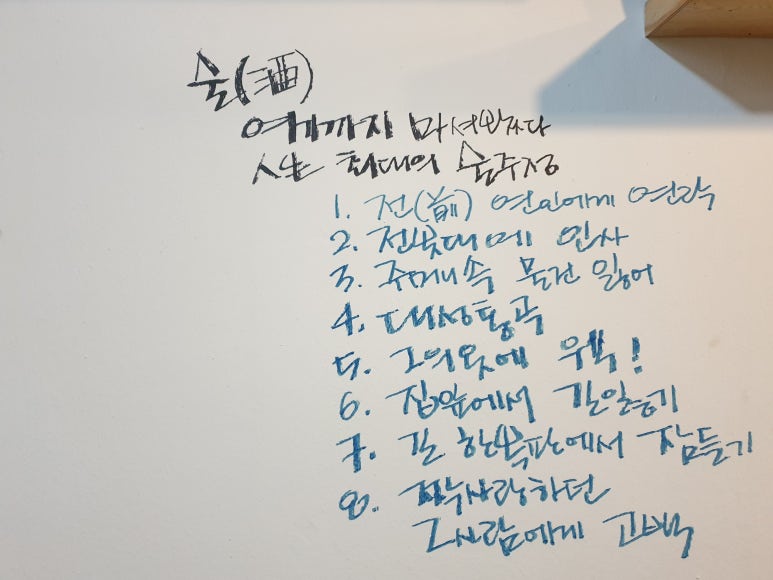 술(酒)
여기까지 마셔봤다
人生 최대의 술주정
1. 전(前) 연인에게 연락
2. 전봇대에 인사
3. 주머니속 물건 잃어
4. 대성통곡
5. 그의 옷에 우웩!
6. 집앞에서 길잃기
7. 길 한복판에서 잠들기
8. 짝사랑하던
그사람에게 고백